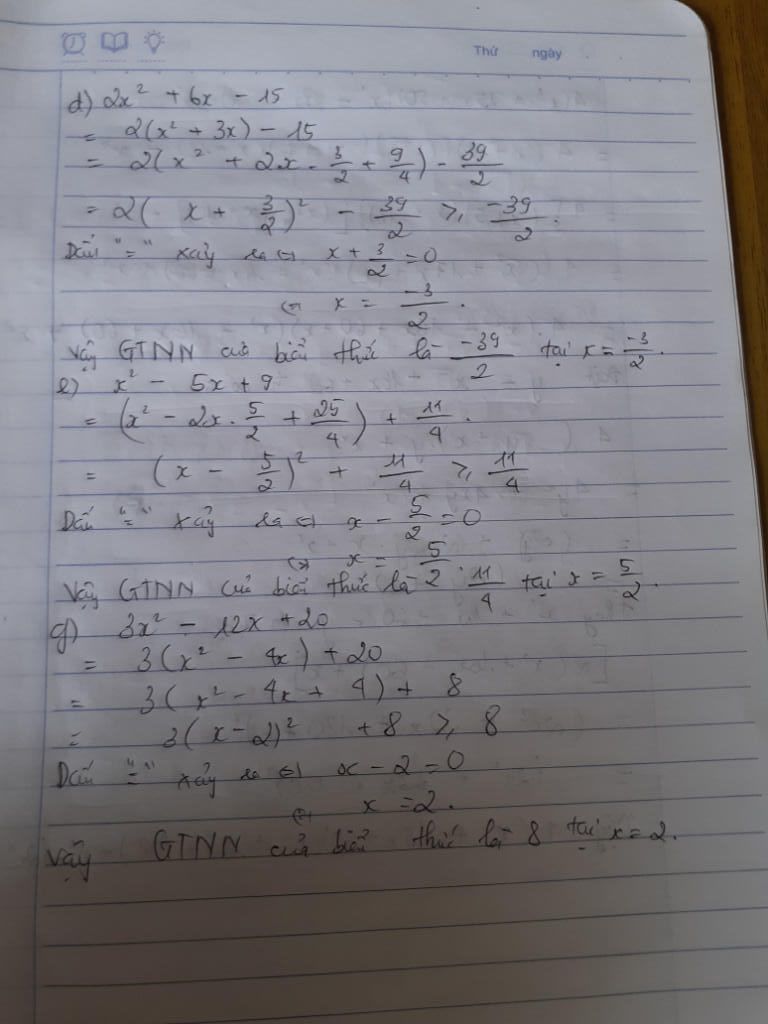 Thứ ngày
d) 2x² + 6x - 15
= 2(x² + 3x) - 15
= 2(x² + 2x · 3/2 + 9/4) - 39/2
= 2( x + 3/2)² - 39/2 ≥ -39/2.
Dấu "=" xảy ra ⇔ x + 3/2 = 0
⇔ x = -3/2.
Vậy GTNN của biểu thức là -39/2 tại x = -3/2.
e) x² - 5x + 9
= (x² - 2x · 5/2 + 25/4) + 11/4.
= (x - 5/2)² + 11/4 ≥ 11/4
Dấu "=" xảy ra ⇔ x - 5/2 = 0
⇔ x = 5/2
Vậy GTNN của biểu thức là 11/4 tại x = 5/2.
g) 3x² - 12x + 20
= 3(x² - 4x) + 20
= 3(x² - 4x + 4) + 8
= 3(x - 2)² + 8 ≥ 8
Dấu "=" xảy ra ⇔ x - 2 = 0
⇔ x = 2.
Vậy GTNN của biểu thức là 8 tại x = 2.